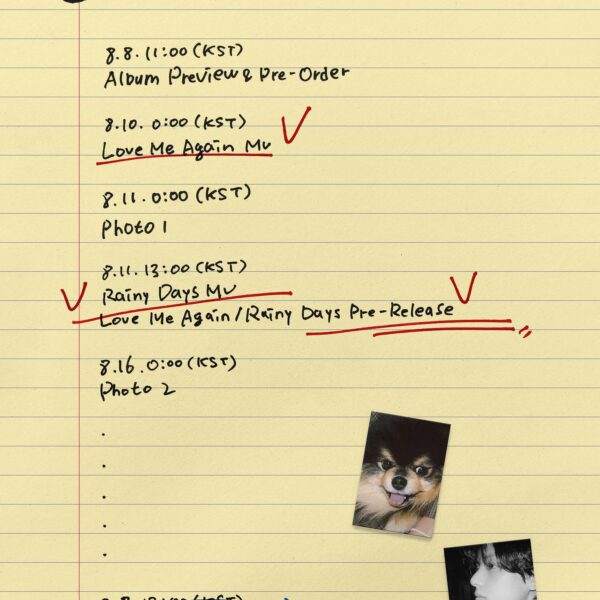 8.8.11:00 (KST)
Album Preview & Pre-Order
8.10. 0:00 (KST)
Love Me Again MV
8.11. 0:00 (KST)
Photo 1
8.11. 13:00 (KST)
Rainy Days MV
Love Me Again/Rainy Days Pre-Release
8.16. 0:00 (KST)
Photo 2
.
.
.
.
.
(KST)